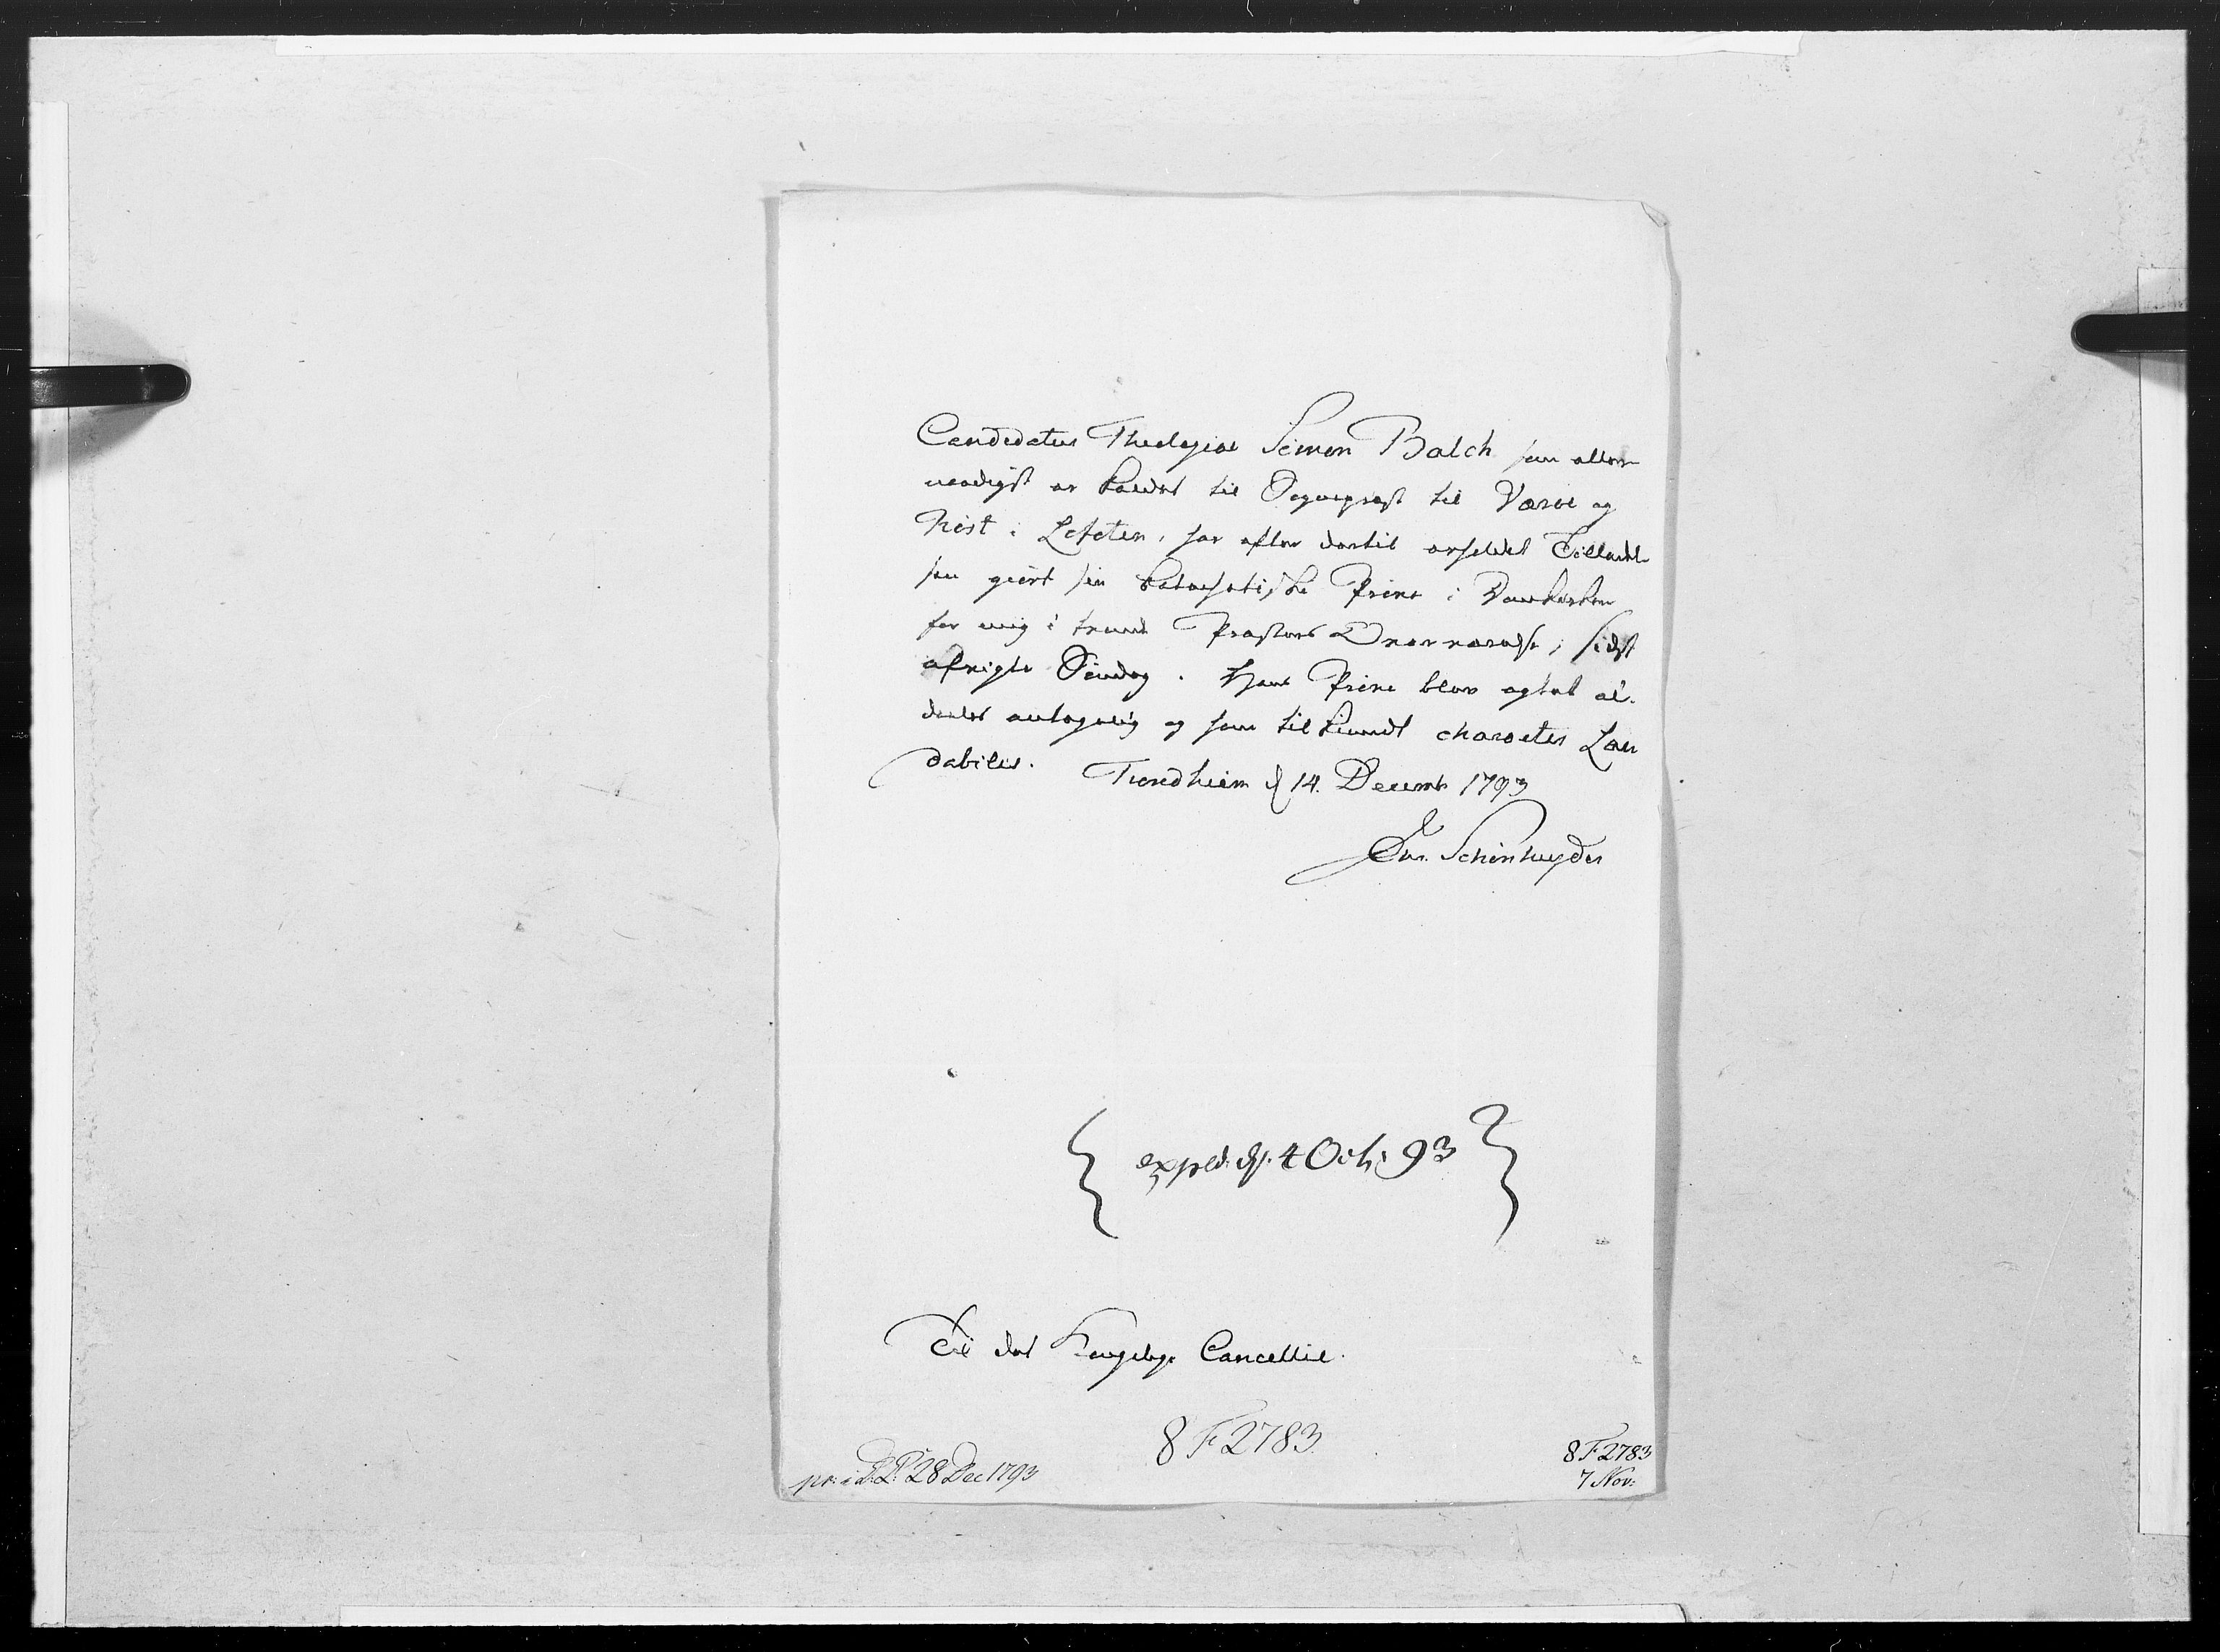 Candidatus Theologiæ Simon Balch som aller
naadigst er kaldet til Sognepræst til Værøe og
Røst i Lofoten, har efter dertil erholdet Tilladel
sen giort sin katechetiske Prøve i Domkirken
for mig i trende Præsters Overværelse, sidst
afvigte Søndag. Hans Prøve blev agtet al-
deeles antagelig og ham tilkiendt characteer Lau
dabilis. Trondhiem d 14. Decembr 1793
Schønheyder
exped. d. 4 Octb. 93
Til det Kongelige Cancellie.
8 F 2783
pr: i D: D: 28 Dec 1793
8 F. 2783
7 Nov: